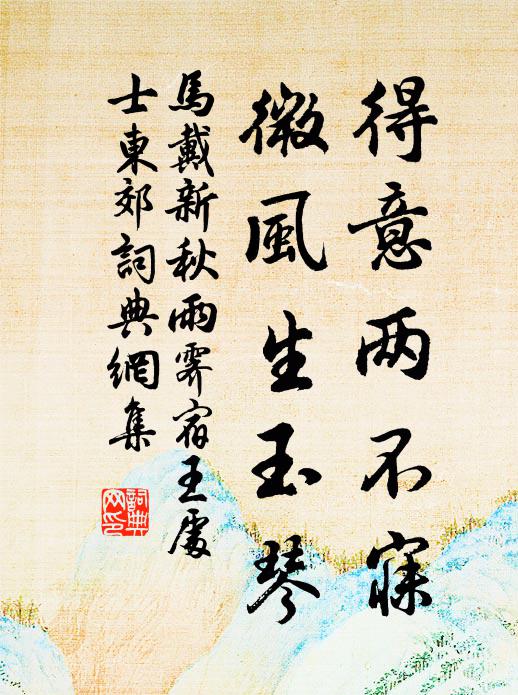 得意两不寐
微風生玉琴
馬戴新秋雨霽宿王處
士東郊詞典網集
詞典
网印